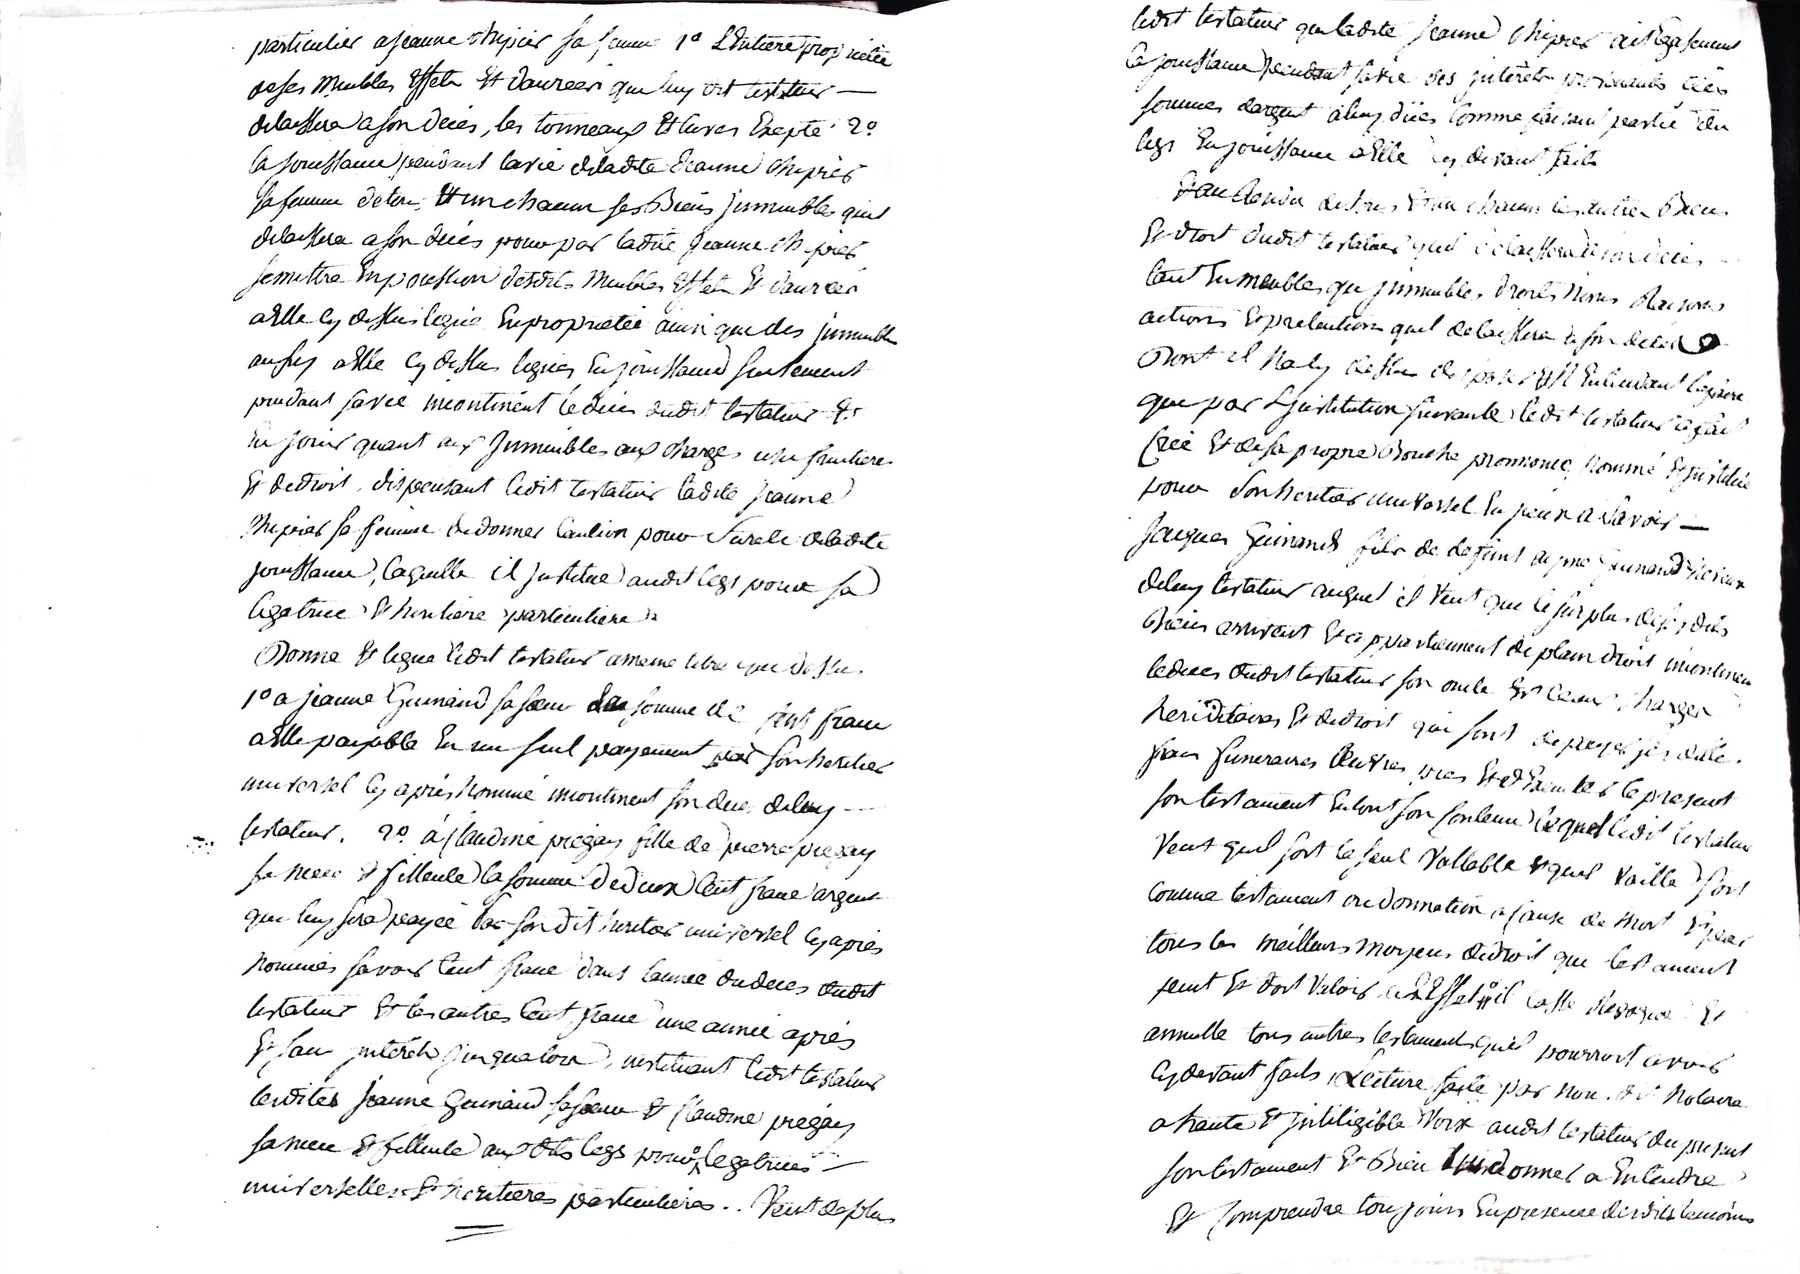 particulier a jeanne chipier sa femme 1º L'Entiere proprietée
de ses Meubles Effets Et danrées que luy dit testateur —
delaissera a son décés, les tonneaux Et cuves Exepté. 2º
la jouissance pendant la vie de ladte Jeanne chipier
sa femme de tous Et un chacun ses Biens jmmeubles quil
delaissera a son décés pour par ladte Jeanne chipier
se mettre En possession desdits Meubles Effets Et danrées
a Elle cy dessus legués En proprietée ainsi que des jmmeubles
aussy a Elle cy dessus legués En jouissance seulement
pendant sa vie incontinent le décés dudit testateur Et
En jouir quant aux jmmeubles aux charges usufruitieres
Et de droit, dispensant ledit testateur ladte Jeanne
chipier sa femme de donner Caution pour Sureté deladte
jouissance, laquelle il jnstitue audit legs pour sa
legatrice Et heritiere particuliere
Donne Et legue ledit testateur a meme titre que dessus
1º a jeanne Guinand sa sœur la somme de cent francs
a Elle payable En un seul payement par son heritier
universel cy aprés nommé incontinent son déces de luy —
testateur. 2º à Claudine pregay fille de pierre pregay
sa niece Et filleule la somme de deux Cent franc argent
que luy sera payée par son dit heritier universel cy aprés
nommés savoir Cent franc dans l'année du deces dudit
testateur Et les autres Cent franc une année aprés
Et sans jnterêts jusqu'alors, instituant ledit testateur
lesdites Jeanne Guinand sa sœur Et Claudine pregay
sa niece Et filleule auxdits legs pour legatrices —
universelles Et heritieres particulieres .. Veut de plus
ledit testateur que ladte Jeanne chipier ait Egalement
la jouissance pendant sa vie des jnterêts provenants des
sommes d'argent a luy dües Comme faisant partie du
legs En jouissance a Elle cy devant fait
Et au Residu de tous Et un chacun les autres Biens
Et droit dudit testateur quil delaissera a son décés
tant En meubles que jmmeubles, droits noms Raisons
actions Et pretentions quil delaissera a son décés
Dont il Na cy dessus disposé Et N'Entendant le faire
que par L'jnstitution suivante ledit testateur a fait
Créé Et de sa propre Bouche prononcé, nommé Et jnstitué
pour son heritier universel En jceux a Savoir —
Jacques Guinand fils de deffunt Guinand Neveux
de luy testateur auquel il veut que le surplus de sesdits
Biens arrivent Et appartiennent de plain droit incontinent
le deces dudit testateur son oncle Et ceux charges
heriditaires Et de droit qui sont de payer ses dettes
frais funeraires Œuvres pies Et d'Executer le present
son testament En tout son Contenu lequel ledit testateur
Veut quil soit le seul Vallable Et quil vaille soit
comme testament ou donnation a Cause de mort Et par
tous les meilleurs moyens de droit que testament
peut Et doit Valoir, il Casse Revoque Et
annulle tous autres testaments quil pourroit avoir
cy devant faits, Lecture faite par nous dit Notaire
a haute Et jntiligible Voix audit testateur du present
son testament Et Bien donner a Entendre
Et Comprendre toujours En presence desdits temoins